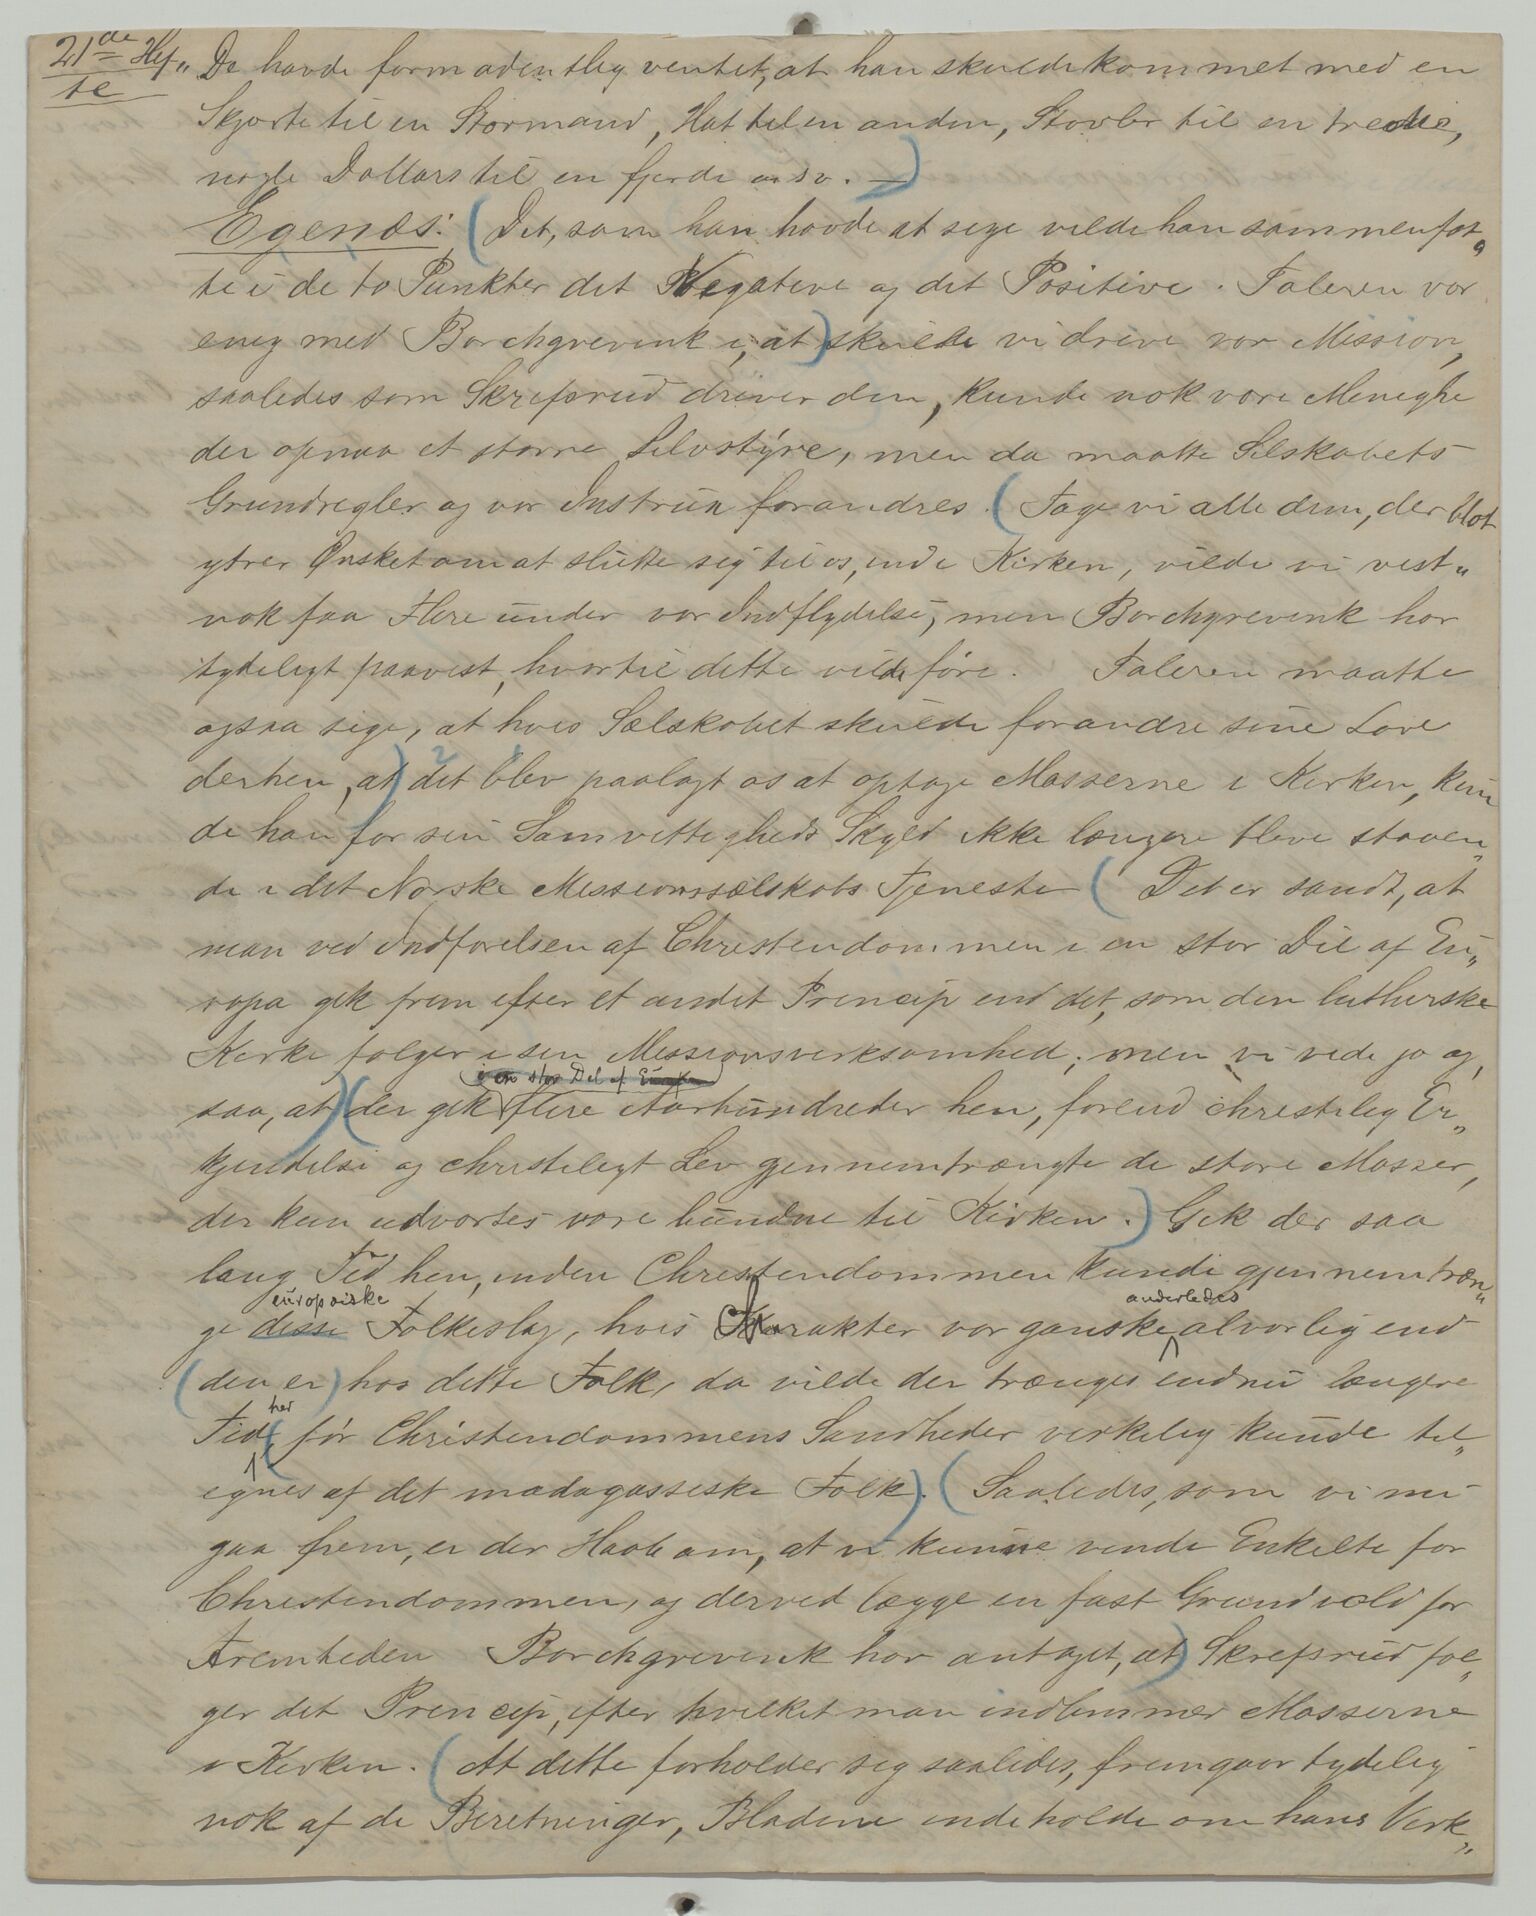 21de Hef„
te
De havde formodentlig ventet, at han skulde kommet med en
Skjorte til en Stormand, Hat til en anden, Støvler til en tredie,
nogle Dollars til en fjerde osv. —)
Egenæs: (Det, som han havde at sige vilde han sammenfat„
te i de to Punkter det Negative og det Positive. Taleren var
enig med Borchgrevink i, at) skulde vi drive vor Mission,
saaledes som Skrefsrud driver den, kunde nok vore Menighe
der opnaa et større Selvstyre, men da maatte Selskabets
Grundregler og vor Instrux forandres. (Tage vi alle dem, der blot
ytrer Ønsket om at slutte sig til os, ind i Kirken, vilde vi vist„
nok faa Flere under vor Indflydelse, men Borchgrevink har
tydeligt paavist, hvortil dette vilde føre. Taleren maatte
ogsaa sige, at hvis Sælskabet skulde forandre sine Love
derhen, at) det blev paalagt os at optage Masserne i Kirken, kun
de han for sin Samvittigheds Skyld ikke længere blive staaen„
de i det Norske Missionssælskabs Tjeneste (Det er sandt, at
man ved Indførelsen af Christendommen i en stor Del af Eu„
ropa gik frem efter et andet Princip end det, som den lutherske
Kirke følger i sin Missionsvirksomhed; men vi vide jo og„
i en stor Del af Europa
saa, at) (der gik flere Aarhundreder hen, førend christelig Er„
kjendelse og christeligt Lev gjennemtrængte de store Masser,
der kun udvortes vare bundne til Kirken.) Gik der saa
lang Tid hen, inden Christendommen kunde gjennemtræn„
europæiske
anderledes
ge disse Folkeslag, hvis Karakter var ganske alvorlig end
(den er) hos dette Folk, da vilde der trænges endnu længere
her
Tid (før Christendommens Sandheder virkelig kunde til„
egnes af det madagassiske Folk). (Saaledes, som vi nu
gaa frem, er der Haab om, at vi kunne vinde Enkelte for
Christendommen, og derved lægge en fast Grundvold for
Fremtiden Borchgrevink har antaget, at) Skrefsrud føl„
ger det Princip, efter hvilket man indlemmer Masserne
i Kirken. (At dette forholder sig saaledes, fremgaar tydelig
nok af de Beretninger, Bladene indeholde om hans Virk„